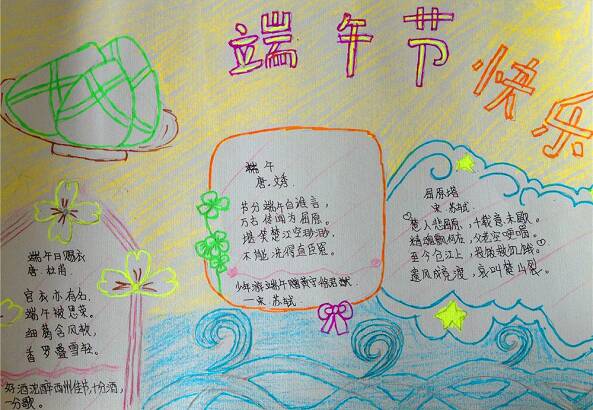 端午节
快乐
端午
唐.文秀
节分端午自谁言,
万古传闻为屈原。
堪笑楚江空渺渺,
不能洗得直臣冤。
少年游端午赠黄守徐君猷
—宋 苏轼
屈原塔
宋 苏轼
楚人悲屈原,千载意未歇。
精魂飘何在,父老空哽咽。
至今仓江上,投饭救饥渴。
遗风成竞渡,哀叫楚山裂。
端午日赐衣
唐 杜甫
宫衣亦有名,
端午被恩荣。
细葛含风软,
香罗叠雪轻。
好酒沈醉酉州佳节,十分酒,
一分歌。